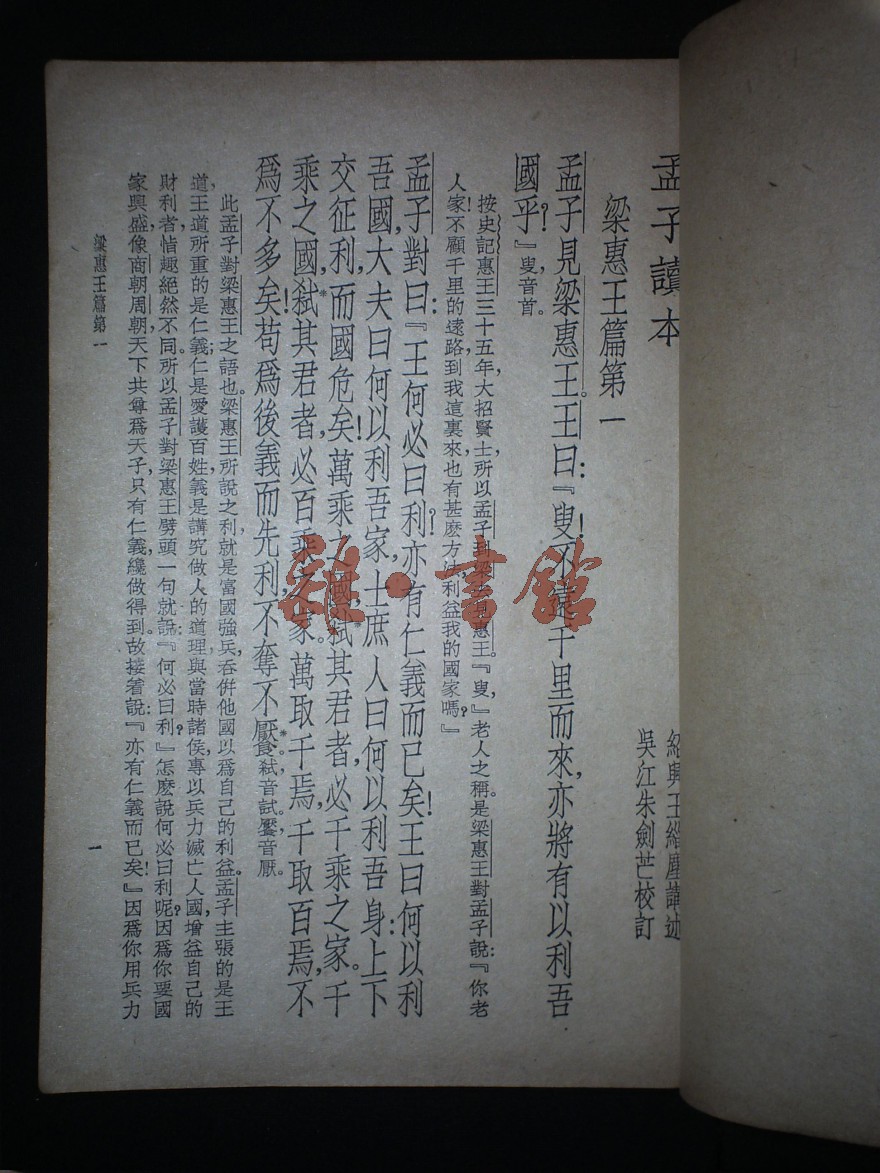 孟子讀本
紹興王緇塵講述
吳江朱劍芒校訂
梁惠王篇第一
孟子見梁惠王。王曰：『叟！不遠千里而來，亦將有以利吾
國乎？』叟，音首。
按史記惠王三十五年，大招賢士，所以孟子到梁，見惠王。『叟，』老人之稱。是梁惠王對孟子說：『你老
人家不顧千里的遠路，到我這裏來，也有甚麽方法，利益我的國家嗎？』
孟子對曰：『王何必曰利？亦有仁義而已矣！王曰何以利
吾國，大夫曰何以利吾家，士庶人曰何以利吾身；上下
交征利，而國危矣！萬乘之國，弒其君者，必千乘之家。千
乘之國，弒其君者，必百乘之家。萬取千焉，千取百焉，不
爲不多矣！苟爲後義而先利，不奪不饜。弒，音試。饜，音厭。
此孟子對梁惠王之語也。梁惠王所說之利，就是富國強兵，吞併他國，以爲自己的利益。孟子主張的是王
道，王道所重的是仁義；仁是愛護百姓，義是講究做人的道理，與當時諸侯專以兵力滅亡人國，增益自己的
財利者，情趣絕然不同。所以孟子對梁惠王劈頭一句就說：『何必曰利？』怎麽說何必曰利呢？因爲你要國
家興盛，像商朝周朝，天下共尊爲天子，只有仁義，纔做得到。故接着說：『亦有仁義而已矣！』因爲你用兵力
梁惠王篇第一
一
雜·書館